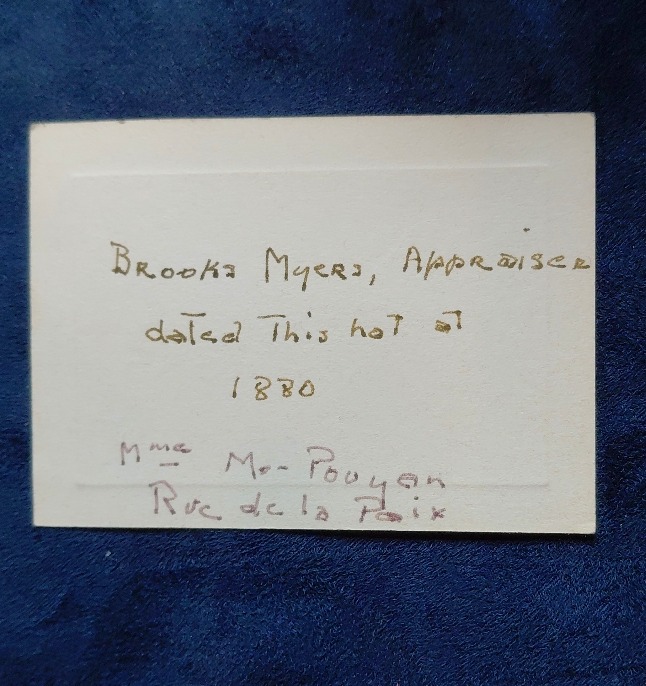 Brooks Myers, Appraiser
dated This hat at
1880
Mme Mc- Pouyan
Rue de la Paix